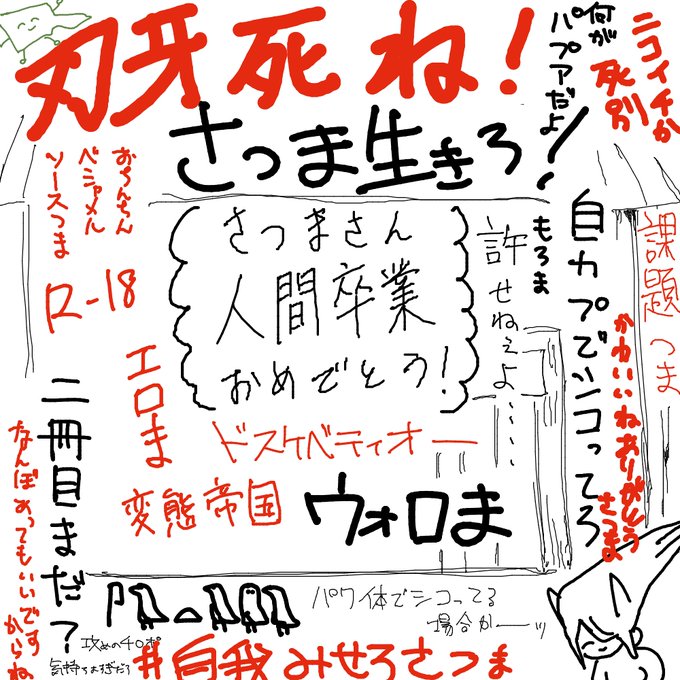 刃牙死ね!
何が
パプアだよ
ニコイチか
死別
さつま生きろ!
おちんちん
ベシャメル
ソースつま
R-18
さつまさん
人間卒業
おめでとう!
もろま
許せねぇよ....
自カプでシコってろ
課題つま
かわいいねありがとう
さつま
エロま
ドスケベティオー
変態帝国
ウォロま
二冊目まだ?
なんぼあってもいいです
からね
パワ体でシコってる
場合かーッ
攻めのチロポ
気持ちよすぎだろ
#自我みせろさつま